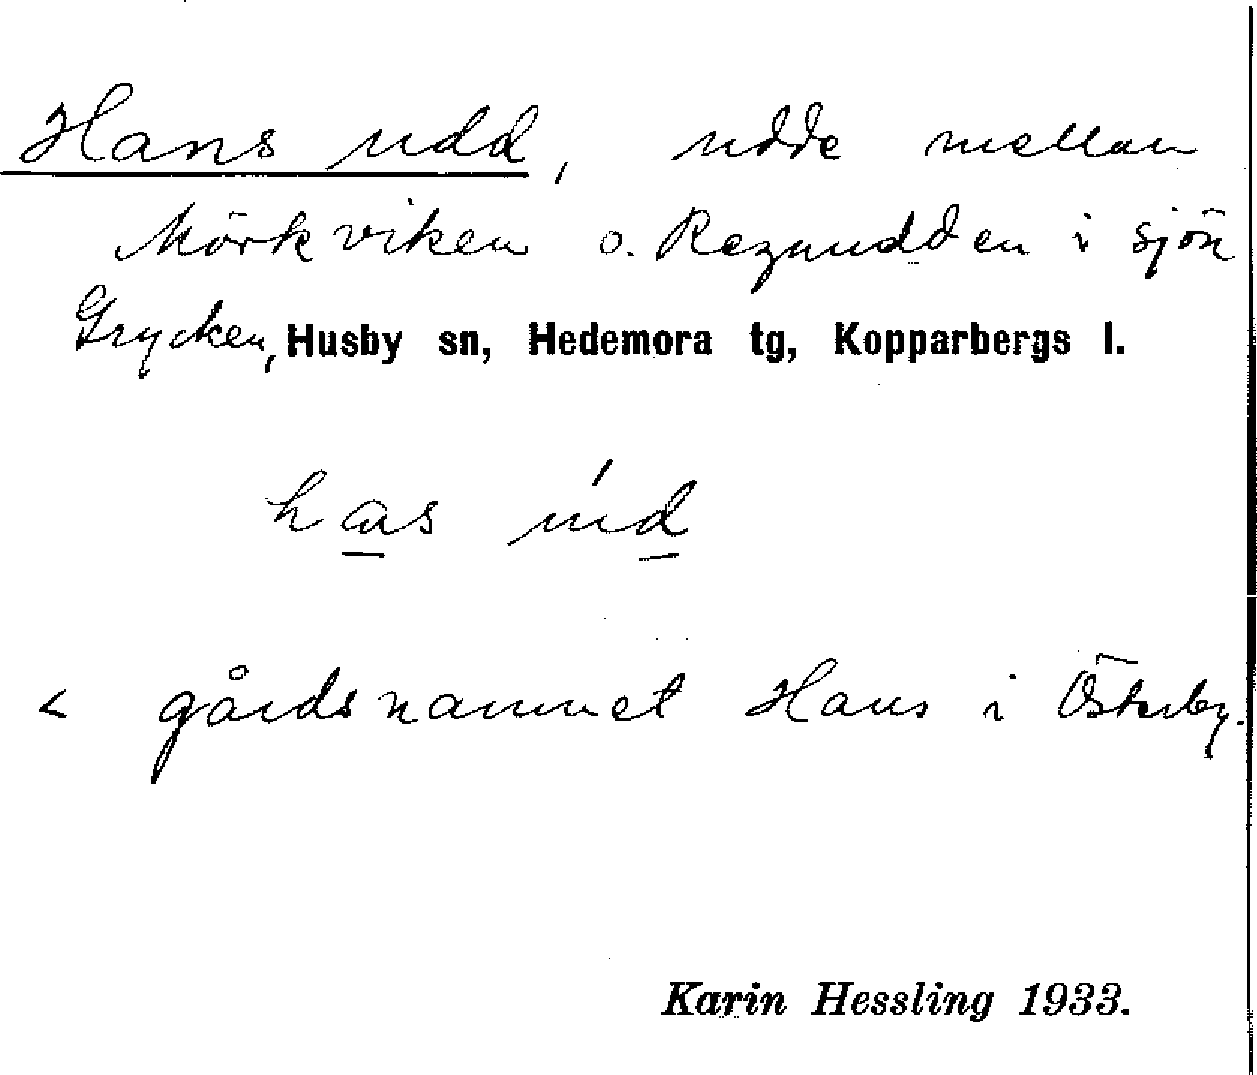 Hans udd, udde mellan
Mörkviken o. Regnudden i sjön
Grycken, Husby sn, Hedemora tg, Kopparbergs l.
has úd
< gårdsnamnet Hans i Österby.
Karin Hessling 1933.